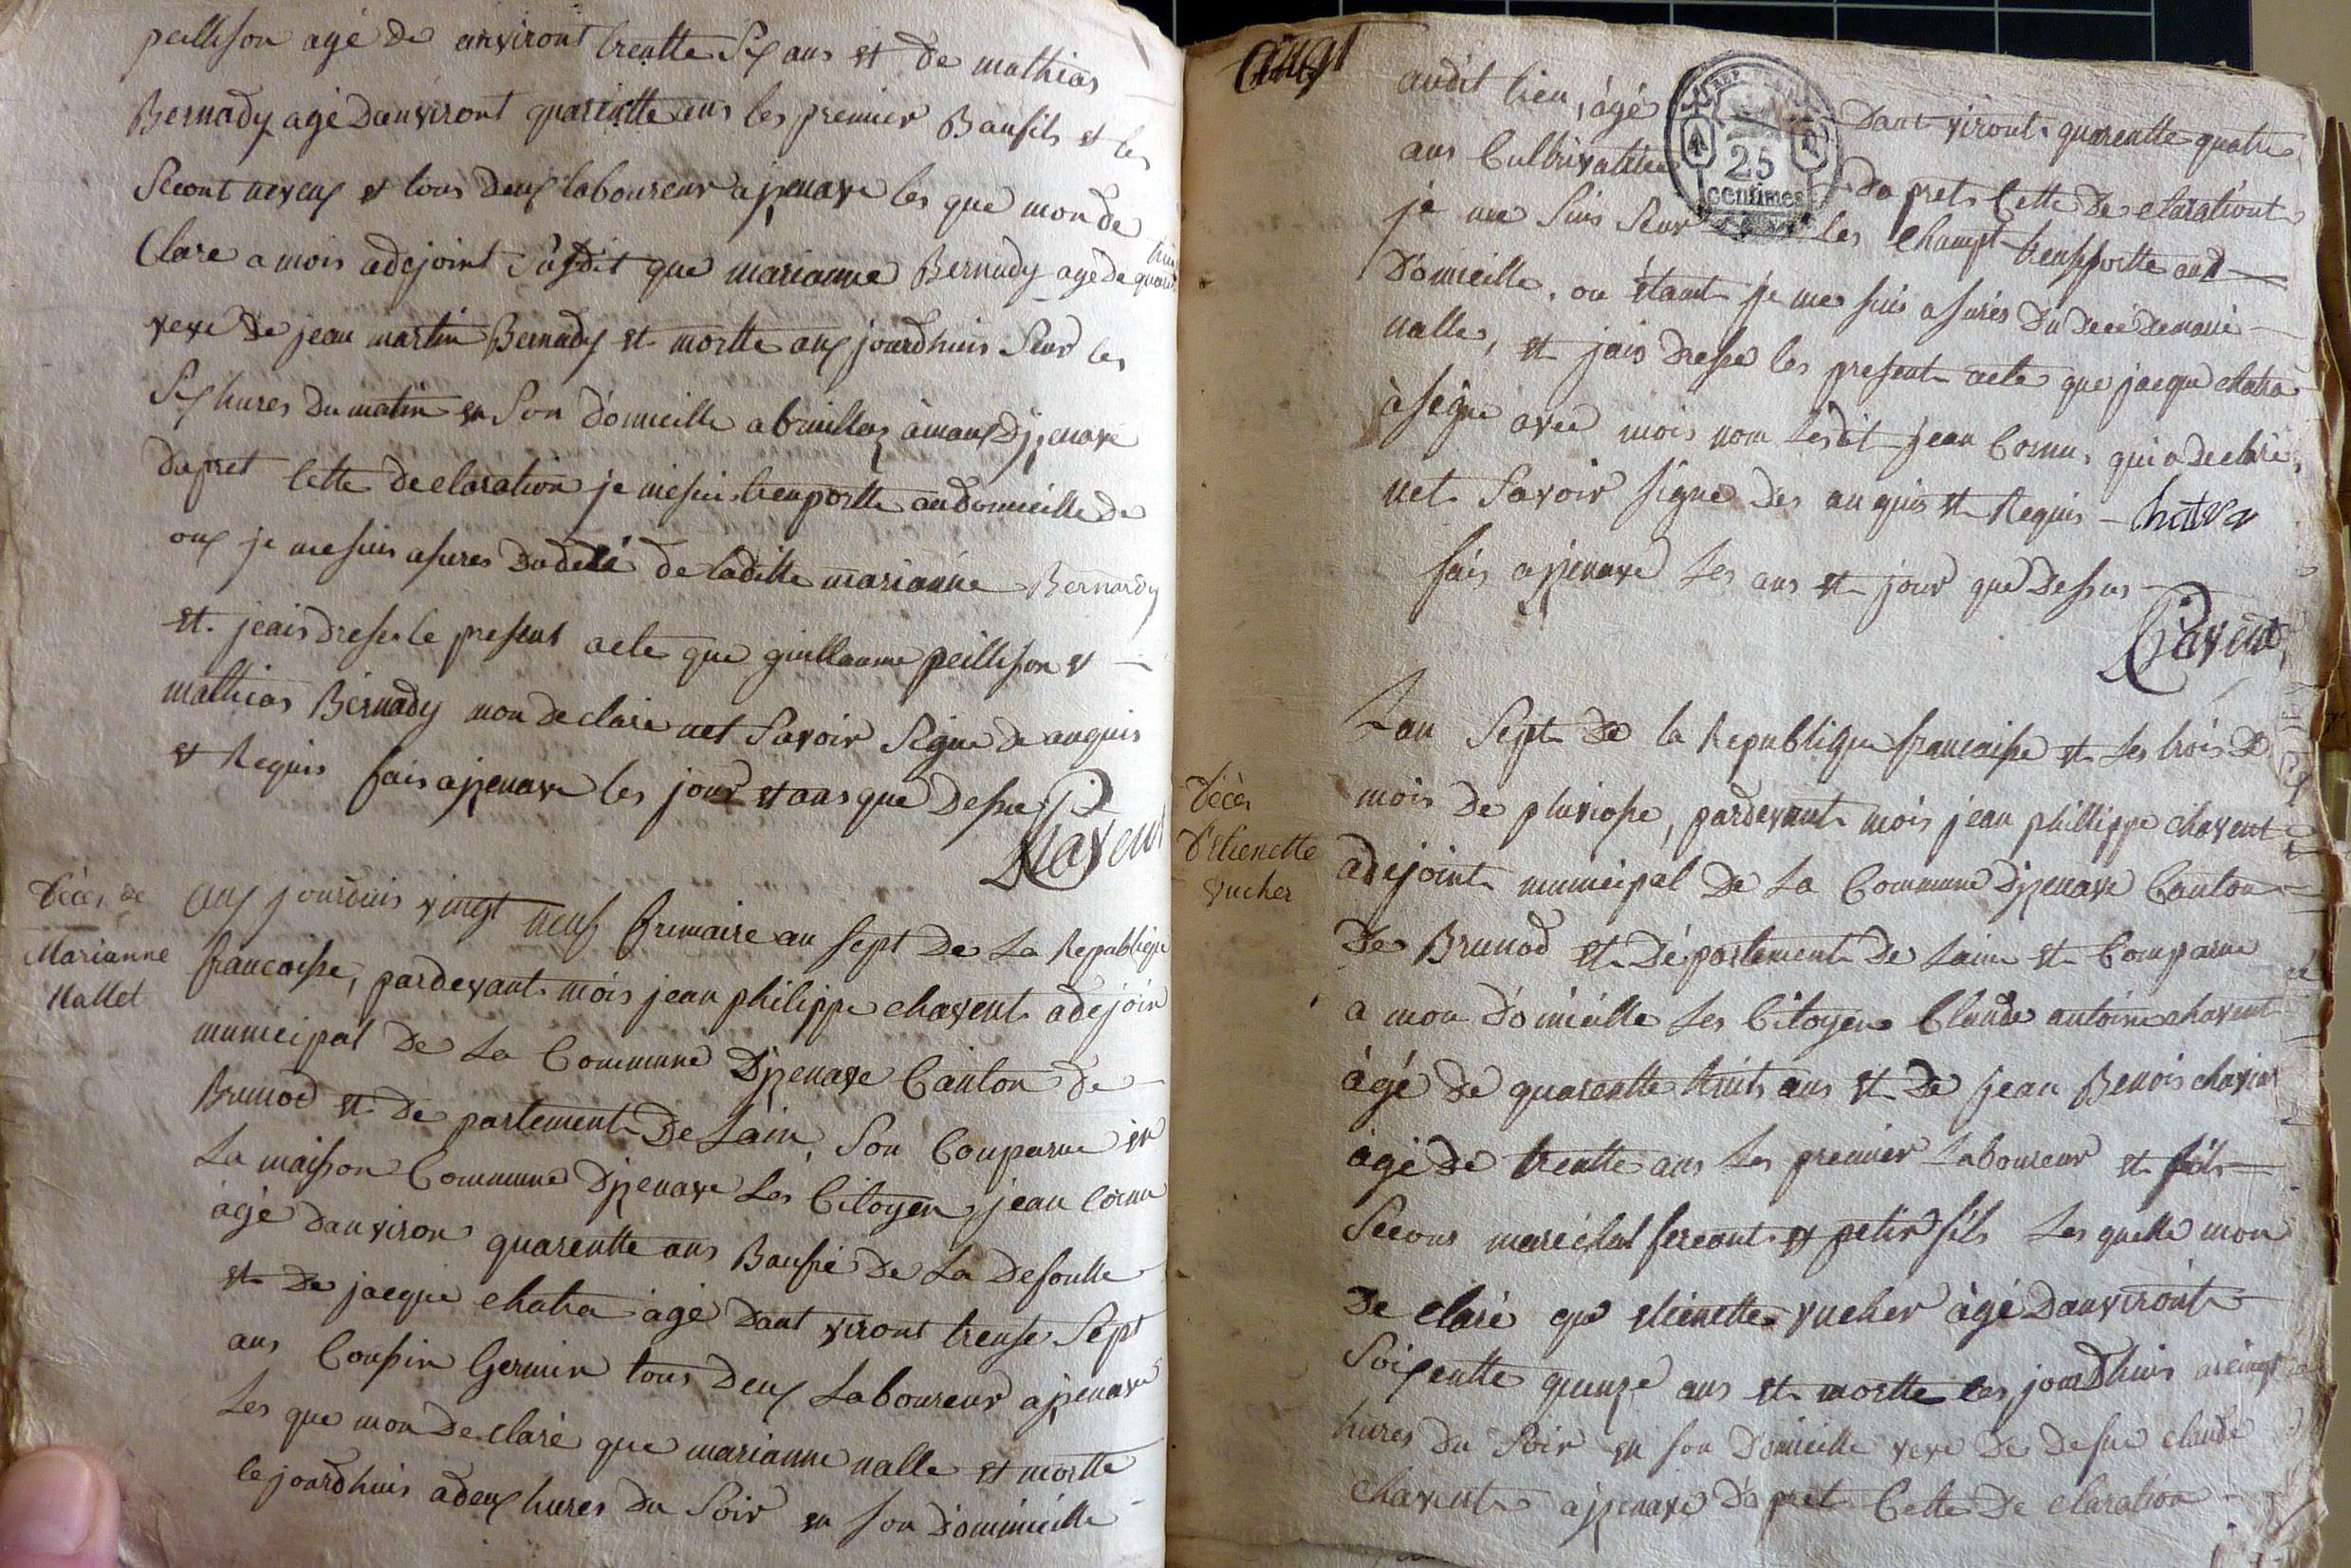 peillison agé de anviront trentte six ans et de mathias
Bernady agé danviront quarintte ans les premier Baufils et les
Secont neveux et tous deux laboureur a jzenave les que mon de
Clare a mois adejoint Susdit que marianne Bernady agé de
veve de jean martin Bernady et mortte aux jourdhuis Seur les
Six hures du matin en Son domicille a
dapret Cette declaration je me suis trenportte au domicille de
oux je me suis asures du decé de laditte marianne Bernardy
et jeais dresse le present acte que guillaume peillison et
mathias Bernady mon declaré net Savoir Signe de anquis
et Requis fais a jzenave les jour et ans que dessus
Chavent
Décès de
Marianne
Nallet
aux jourduis vingt neuf frimaire an sept de La Republique
francoisse, pardevant mois jean philippe chavent adejoin
municipal de La Commune Djzenave Canton de
Brunod et de partement De Lain, Son Comparue en
La maison Commune Djzenave Les Citoyen, jean Cornu
àgé danviron quarentte ans Baufré de La desontte
et de jacque chatra àgé dant viront trense Sept
ans Cousin Germin tous deux Laboureur a jzenave
Les que mon declaré que marianne nalle et mortte
le jourdhuis a deux hures du Soir en son domimicille
audit lieu, àgé dant viront quarentte quatre
ans Cultrivatrice dapret Cette declarationt
REP. FRA.
25
centimes
je me Suis Seur Les Champt trensportte aud
domicille, ou étant je me suis asurés du decé de marie
nalle, et jais dresse les present acte que jacque chatra
à signe avec mois nom Lesdit jean Cornu, qui a declaré
net Savoir signe des anquis et Requis - Chatra
fais a jzenave Les ans et jour que dessus
Chavent
Lan Sept de la Republique francoisse et Les trois de
Décès
D'Etienette
Vucher
mois de pluviosse, pardevant mois jean phillippe chavent
adejoint municipal de La Commune Djzenave Canton
de Brunod et Département de Lain et Comparue
a mon domicille Les Citoyen Claude antoine chavent
àgé de quarentte huit ans et de jean Benois chavent
àgé de trentte ans Les premier Laboureur et fils
Secons marechal fereant et petit fils Les quelle mon
de claré que etienette vucher àgé danviront
Soixentte quinze ans et mortte les jourdhuis
hures du Soir en son domicille veve de defue claude
Chavent a jzenave dapret Cette de claration